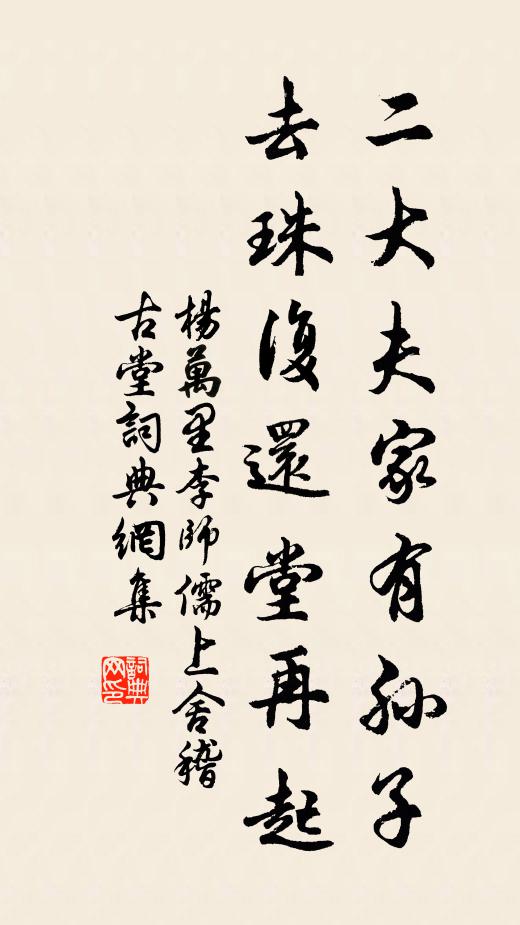 二大夫家有孙子
去珠復還堂再起
楊萬里李師儒上舍稽
古堂詞典網集
詞典网印